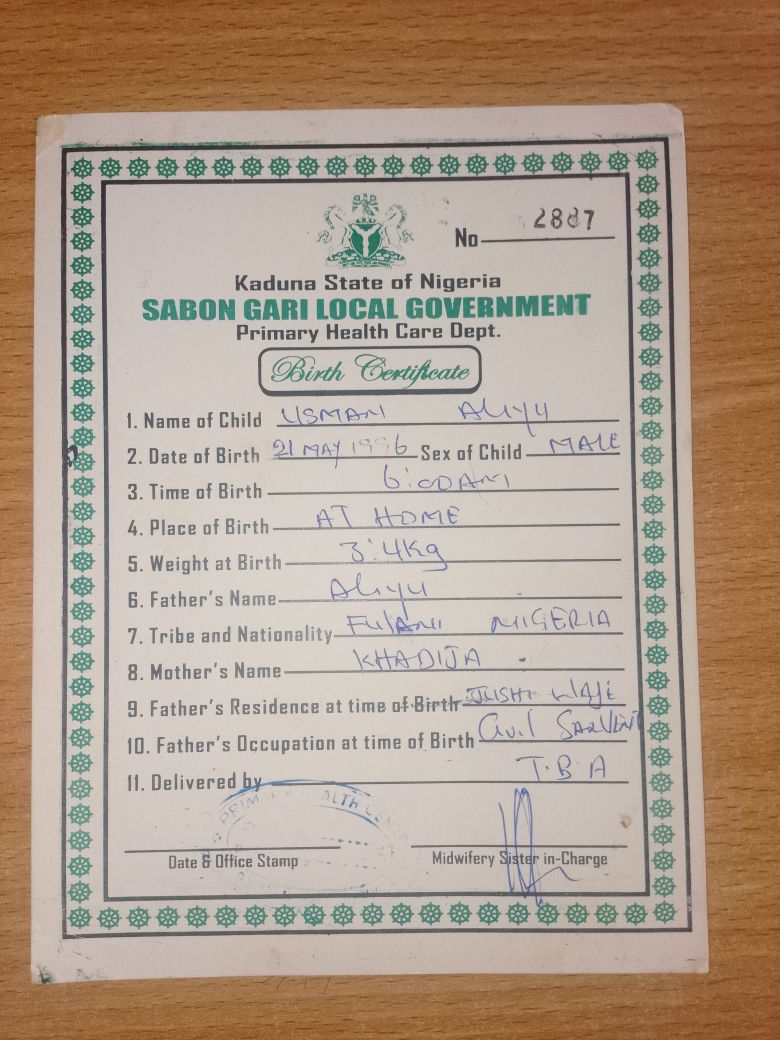 No 2887
Kaduna State of Nigeria
SABON GARI LOCAL GOVERNMENT
Primary Health Care Dept.
Birth Certificate
1. Name of Child USMAN Aliyu
2. Date of Birth 21 MAY 1996 Sex of Child MALE
3. Time of Birth 6:00AM
4. Place of Birth AT HOME
5. Weight at Birth 3:4Kg
6. Father's Name Aliyu
7. Tribe and Nationality FulANI NIGERIA
8. Mother's Name KHADIJA
9. Father's Residence at time of Birth JUSHI WAJE
10. Father's Occupation at time of Birth Civil
11. Delivered by T.B.A
HEALTH
Date & Office Stamp Midwifery Sister in-Charge